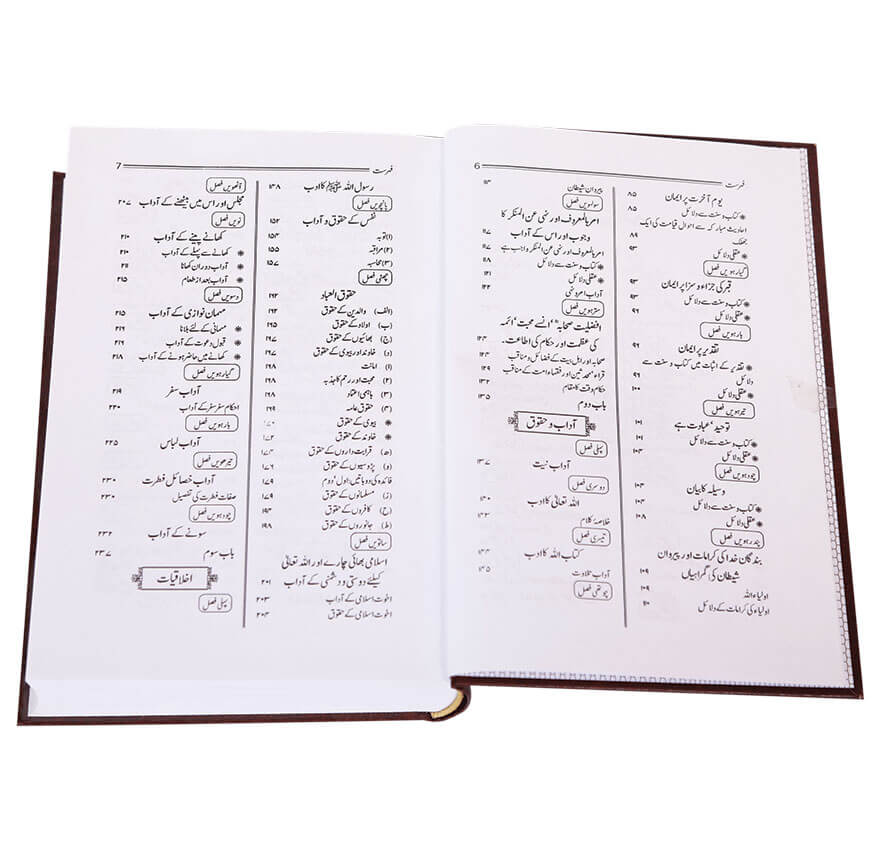 6
فہرست
یوم آخرت پر ایمان ۸۵
✷ کتاب و سنت سے دلائل ۸۵
احادیث مبارکہ سے احوال قیامت کی ایک
جھلک ۸۹
✷ عقلی دلائل ۹۳
گیارہویں فصل
قبر کی جزاء و سزا پر ایمان ۹۳
✷ کتاب و سنت سے دلائل ۹۳
✷ عقلی دلائل ۹۶
بارہویں فصل
تقدیر پر ایمان ۹۷
✷ تقدیر کے اثبات میں کتاب و سنت سے
دلائل ۹۹
✷ عقلی دلائل ۱۰۰
تیرہویں فصل
توحید عبادت ہے ۱۰۱
✷ کتاب و سنت سے دلائل ۱۰۱
✷ عقلی دلائل ۱۰۳
چودہویں فصل
وسیلہ کا بیان ۱۰۴
✷ کتاب و سنت سے دلائل ۱۰۴
✷ عقلی دلائل ۱۰۸
پندرہویں فصل
بندگان خدا کی کرامات اور پیروان
شیطان کی گمراہیاں ۱۰۹
اولیاء اللہ ۱۰۹
اولیاء کی کرامات کے دلائل ۱۱۰
پیروان شیطان ۱۱۴
سولہویں فصل
امر بالمعروف اور نہی عن المنکر کا
وجوب اور اس کے آداب ۱۱۷
امر بالمعروف اور نہی عن المنکر واجب ہے ۱۱۷
✷ کتاب و سنت سے دلائل ۱۱۸
✷ عقلی دلائل ۱۲۱
آداب امر و نہی ۱۲۲
سترہویں فصل
افضلیت صحابہ" انسے محبت' ائمہ
کی عظمت اور حکام کی اطاعت۔ ۱۲۴
صحابہ اور اہل بیت کے فضائل و مناقب ۱۲۷
قراء، محدثین اور فقہاء امت کے مناقب ۱۳۰
حکام وقت کا مقام ۱۳۲
باب دوم ۱۳۵
آداب و حقوق
پہلی فصل
آداب نیت ۱۳۷
دوسری فصل
اللہ تعالیٰ کا ادب ۱۴۰
خلاصہ کلام ۱۴۳
تیسری فصل
کتاب اللہ کا ادب ۱۴۴
آداب تلاوت ۱۴۵
چوتھی فصل
7
فہرست
رسول اللہ ﷺ کا ادب ۱۴۸
پانچویں فصل
نفس کے حقوق و آداب ۱۵۲
(۱) توبہ ۱۵۴
(۲) مراقبہ ۱۵۵
(۳) محاسبہ ۱۵۷
چھٹی فصل
حقوق العباد ۱۹۲
(الف) والدین کے حقوق ۱۹۲
(ب) اولاد کے حقوق ۱۹۵
(ج) بھائیوں کے حقوق ۱۹۶
(د) خاوند اور بیوی کے حقوق ۱۹۷
(۱) امانت ۱۹۸
(۲) محبت اور رحم کا جذبہ ۱۹۸
(۳) باہمی اعتماد ۱۹۸
(۴) حقوق عامہ ۱۹۹
✷ بیوی کے حقوق ۱۷۰
✷ خاوند کے حقوق
(ھ) قرابت داروں کے حقوق ۱۷۴
(و) پڑوسیوں کے حقوق ۱۷۶
فائدہ کی دو باتیں: اول' دوم ۱۷۹
(ز) مسلمانوں کے حقوق
(ح) کافروں کے حقوق
(ط) جانوروں کے حقوق ۱۹۸
ساتویں فصل
اسلامی بھائی چارے اور اللہ تعالیٰ
کیلئے دوستی و دشمنی کے آداب ۲۰۱
اخوت اسلامی کے آداب ۲۰۳
اخوت اسلامی کے حقوق ۲۰۴
آٹھویں فصل
مجلس اور اس میں بیٹھنے کے آداب ۲۰۷
نویں فصل
کھانے پینے کے آداب ۲۱۰
✷ کھانے سے پہلے کے آداب ۲۱۰
✷ آداب دوران کھانا ۲۱۱
✷ آداب بعد از طعام ۲۱۵
دسویں فصل
مہمان نوازی کے آداب ۲۱۵
✷ مہمانی کے لئے بلانا ۲۱۶
✷ قبول دعوت کے آداب ۲۱۶
✷ کھانے میں حاضر ہونے کے آداب ۲۱۸
گیارہویں فصل
آداب سفر ۲۱۹
احکام سفر سفر کے آداب ۲۲۰
بارہویں فصل
آداب لباس ۲۲۵
تیرھویں فصل
آداب خصائل فطرت ۲۳۰
صفات فطرت کی تفصیل ۲۳۰
چودہویں فصل
سونے کے آداب ۲۳۲
باب سوم ۲۳۷
اخلاقیات
پہلی فصل